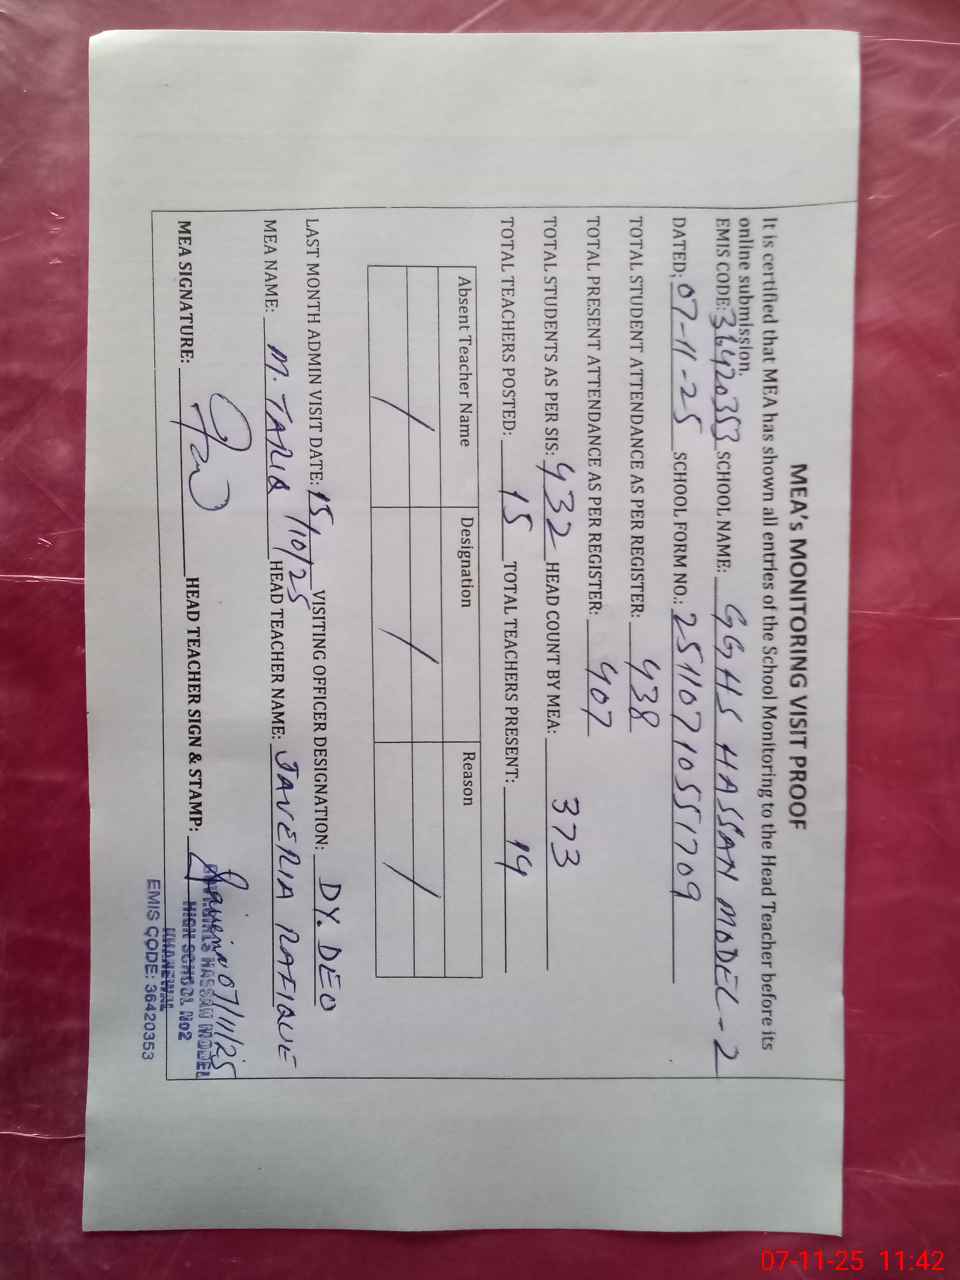 MEA's MONITORING VISIT PROOF
It is certified that MEA has shown all entries of the School Monitoring to the Head Teacher before its
online submission.
EMIS CODE: 36420353 SCHOOL NAME: GGHS HASSAN MODEL-2
DATED: 07-11-25 SCHOOL FORM NO.: 25110710551709
TOTAL STUDENT ATTENDANCE AS PER REGISTER: 438
TOTAL PRESENT ATTENDANCE AS PER REGISTER: 407
TOTAL STUDENTS AS PER SIS: 432 HEAD COUNT BY MEA: 373
TOTAL TEACHERS POSTED: 15 TOTAL TEACHERS PRESENT: 14
Absent Teacher Name Designation Reason
/ / /
LAST MONTH ADMIN VISIT DATE: 15/10/25 VISITING OFFICER DESIGNATION: DY. DEO
MEA NAME: M. TARIQ HEAD TEACHER NAME: JAVERIA RAFIQUE
MEA SIGNATURE: HEAD TEACHER SIGN & STAMP: 07/11/25
GIRLS HASSAN MODEL
HIGH SCHOOL No2
KHANEWAL
EMIS CODE: 36420353
07-11-25 11:42